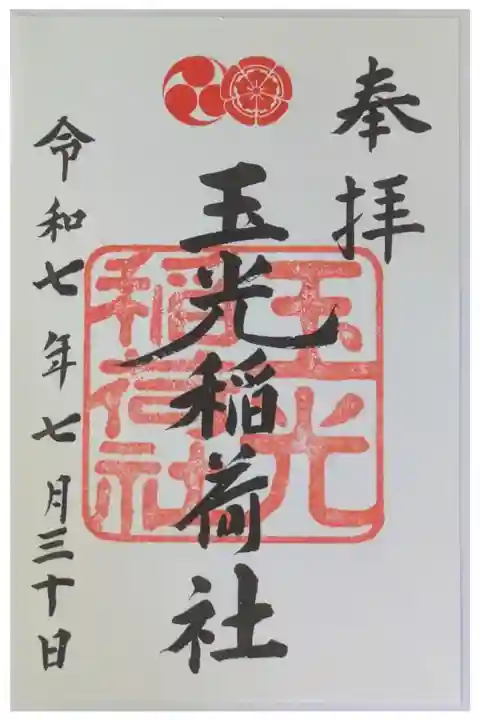 奉拝
玉光稲荷社
玉光
稲荷社
令和七年七月三十日